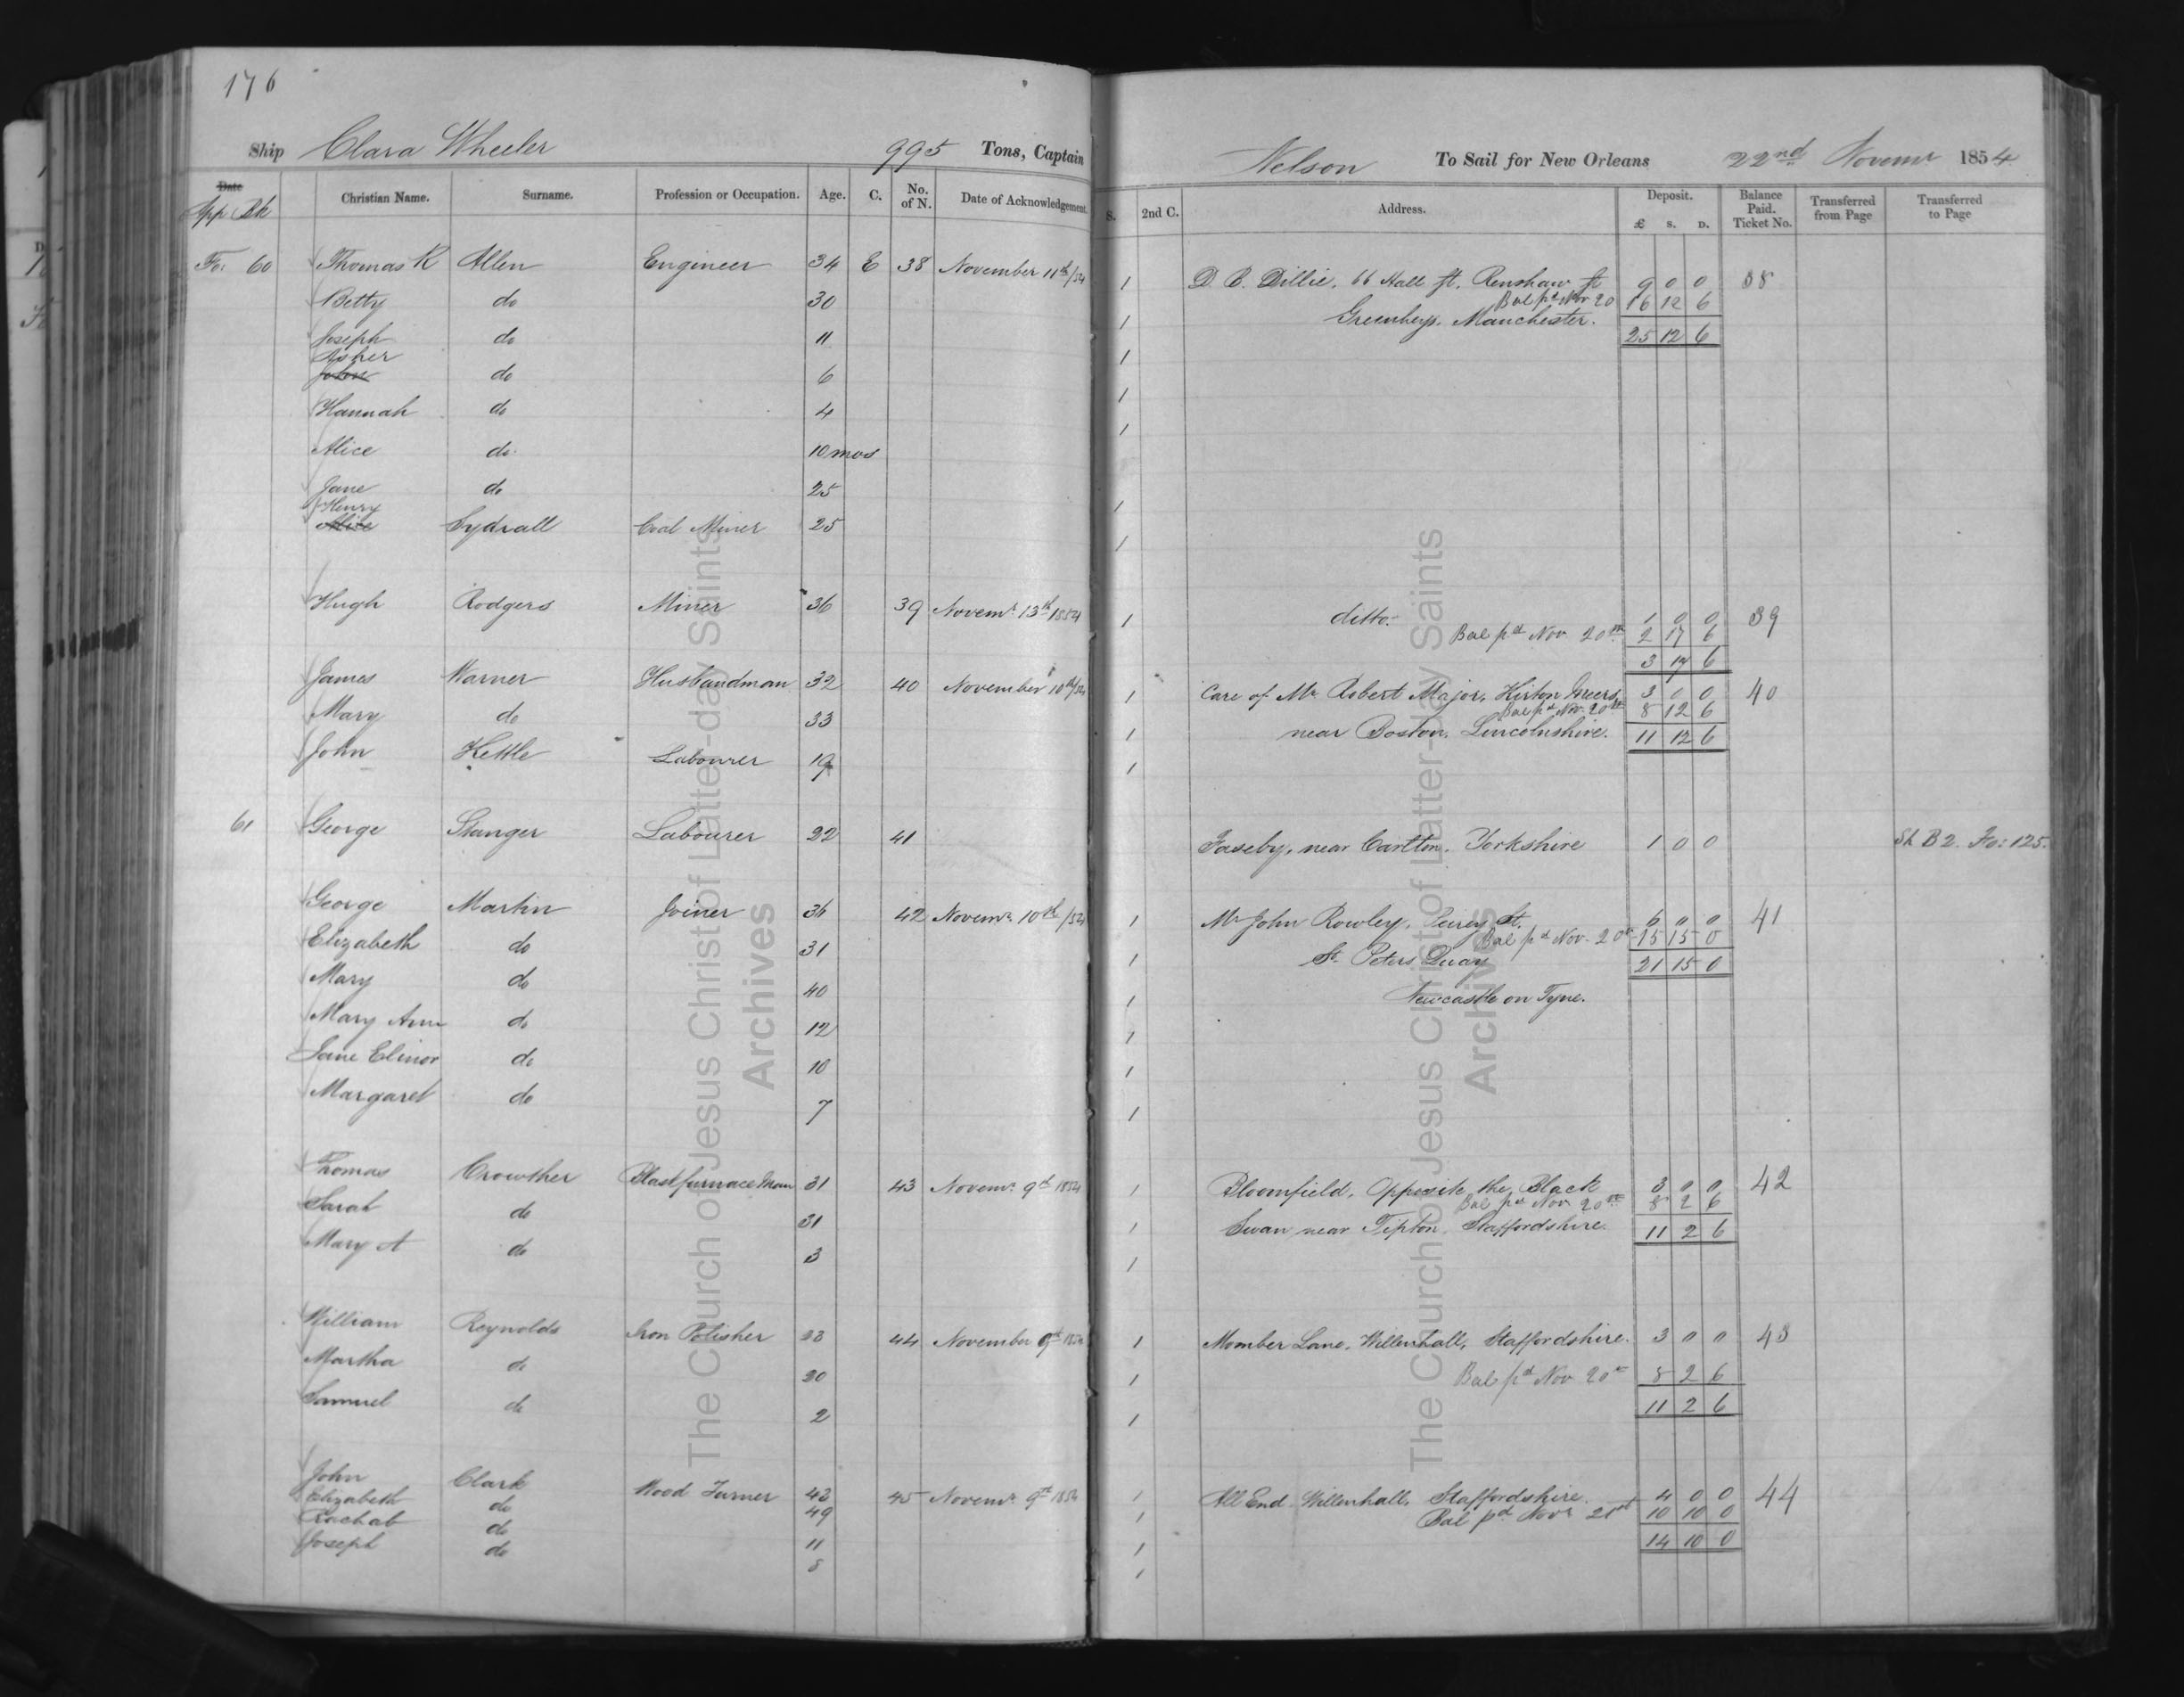 176
Ship Clara Wheeler 995 Tons, Captain Nelson To Sail for New Orleans 22nd Novemr 1854
Date
App Bk Christian Name. Surname. Profession or Occupation. Age. C. No. of N. Date of Acknowledgement. S. 2nd C. Address. Deposit. £ S. D. Balance Paid. Ticket No. Transferred from Page Transferred to Page
Fo: 60 Thomas R Allen Engineer 34 E 38 November 11th/54 1 D. B. Dillie, 66 Hall St, Renshaw St 9 0 0 38
Betty do 30 1 Bal pd Nov 20 16 12 6
Greenheys, Manchester. 25 12 6
Joseph do 11 1
Asher
John do 6 1
Hannah do 4 1
Alice do 10 mos
Jane do 25 1
Henry
Alice Sydrall Coal Miner 25 1
Hugh Rodgers Miner 36 39 Novemr 13th 1854 1 ditto. 1 0 0 39
Bal pd Nov. 20th 2 17 6
3 17 6
James Warner Husbandman 32 40 November 10th/54 1 Care of Mr Robert Major, Kirton 3 0 0 40
Mary do 33 1 Bal pd Nov. 20th 8 12 6
near Boston. Lincolnshire. 11 12 6
John Kettle Labourer 19 1
61 George Stanger Labourer 22 41 Faseby, near Carlton. Yorkshire 1 0 0 Sh B 2. Fo: 125.
George Martin Joiner 36 42 Novemr 10th/54 1 Mr John Rowley, St. 6 0 0 41
Elizabeth do 31 1 Bal pd Nov. 20th 15 15 0
St. Peters Quay 21 15 0
Mary do 40 1 Newcastle on Tyne.
Mary Ann do 12 1
Jane Elinor do 10 1
Margaret do 7 1
Thomas Crowther Blastfurnace Man 31 43 Novemr 9th 1854 1 Bloomfield, Opposite the Black 3 0 0 42
Sarah do 31 1 Bal pd Nov 20th 8 2 6
Swan near Tipton. Staffordshire. 11 2 6
Mary A do 3 1
William Reynolds Iron Polisher 23 44 November 9th 1854 1 Momber Lane, Willenhall, Staffordshire. 3 0 0 43
Martha do 20 1 Bal pd Nov 20th 8 2 6
Samuel do 2 1 11 2 6
John Clark Wood Turner 42 45 Novemr 9th 1854 1 All End Willenhall, Staffordshire. 4 0 0 44
Elizabeth do 49 1 Bal pd Novr 21st 10 10 0
Rachab do 11 1 14 10 0
Joseph do 8 1
The Church of Jesus Christ of Latter-day Saints
Archives
The Church of Jesus Christ of Latter-day Saints
Archives